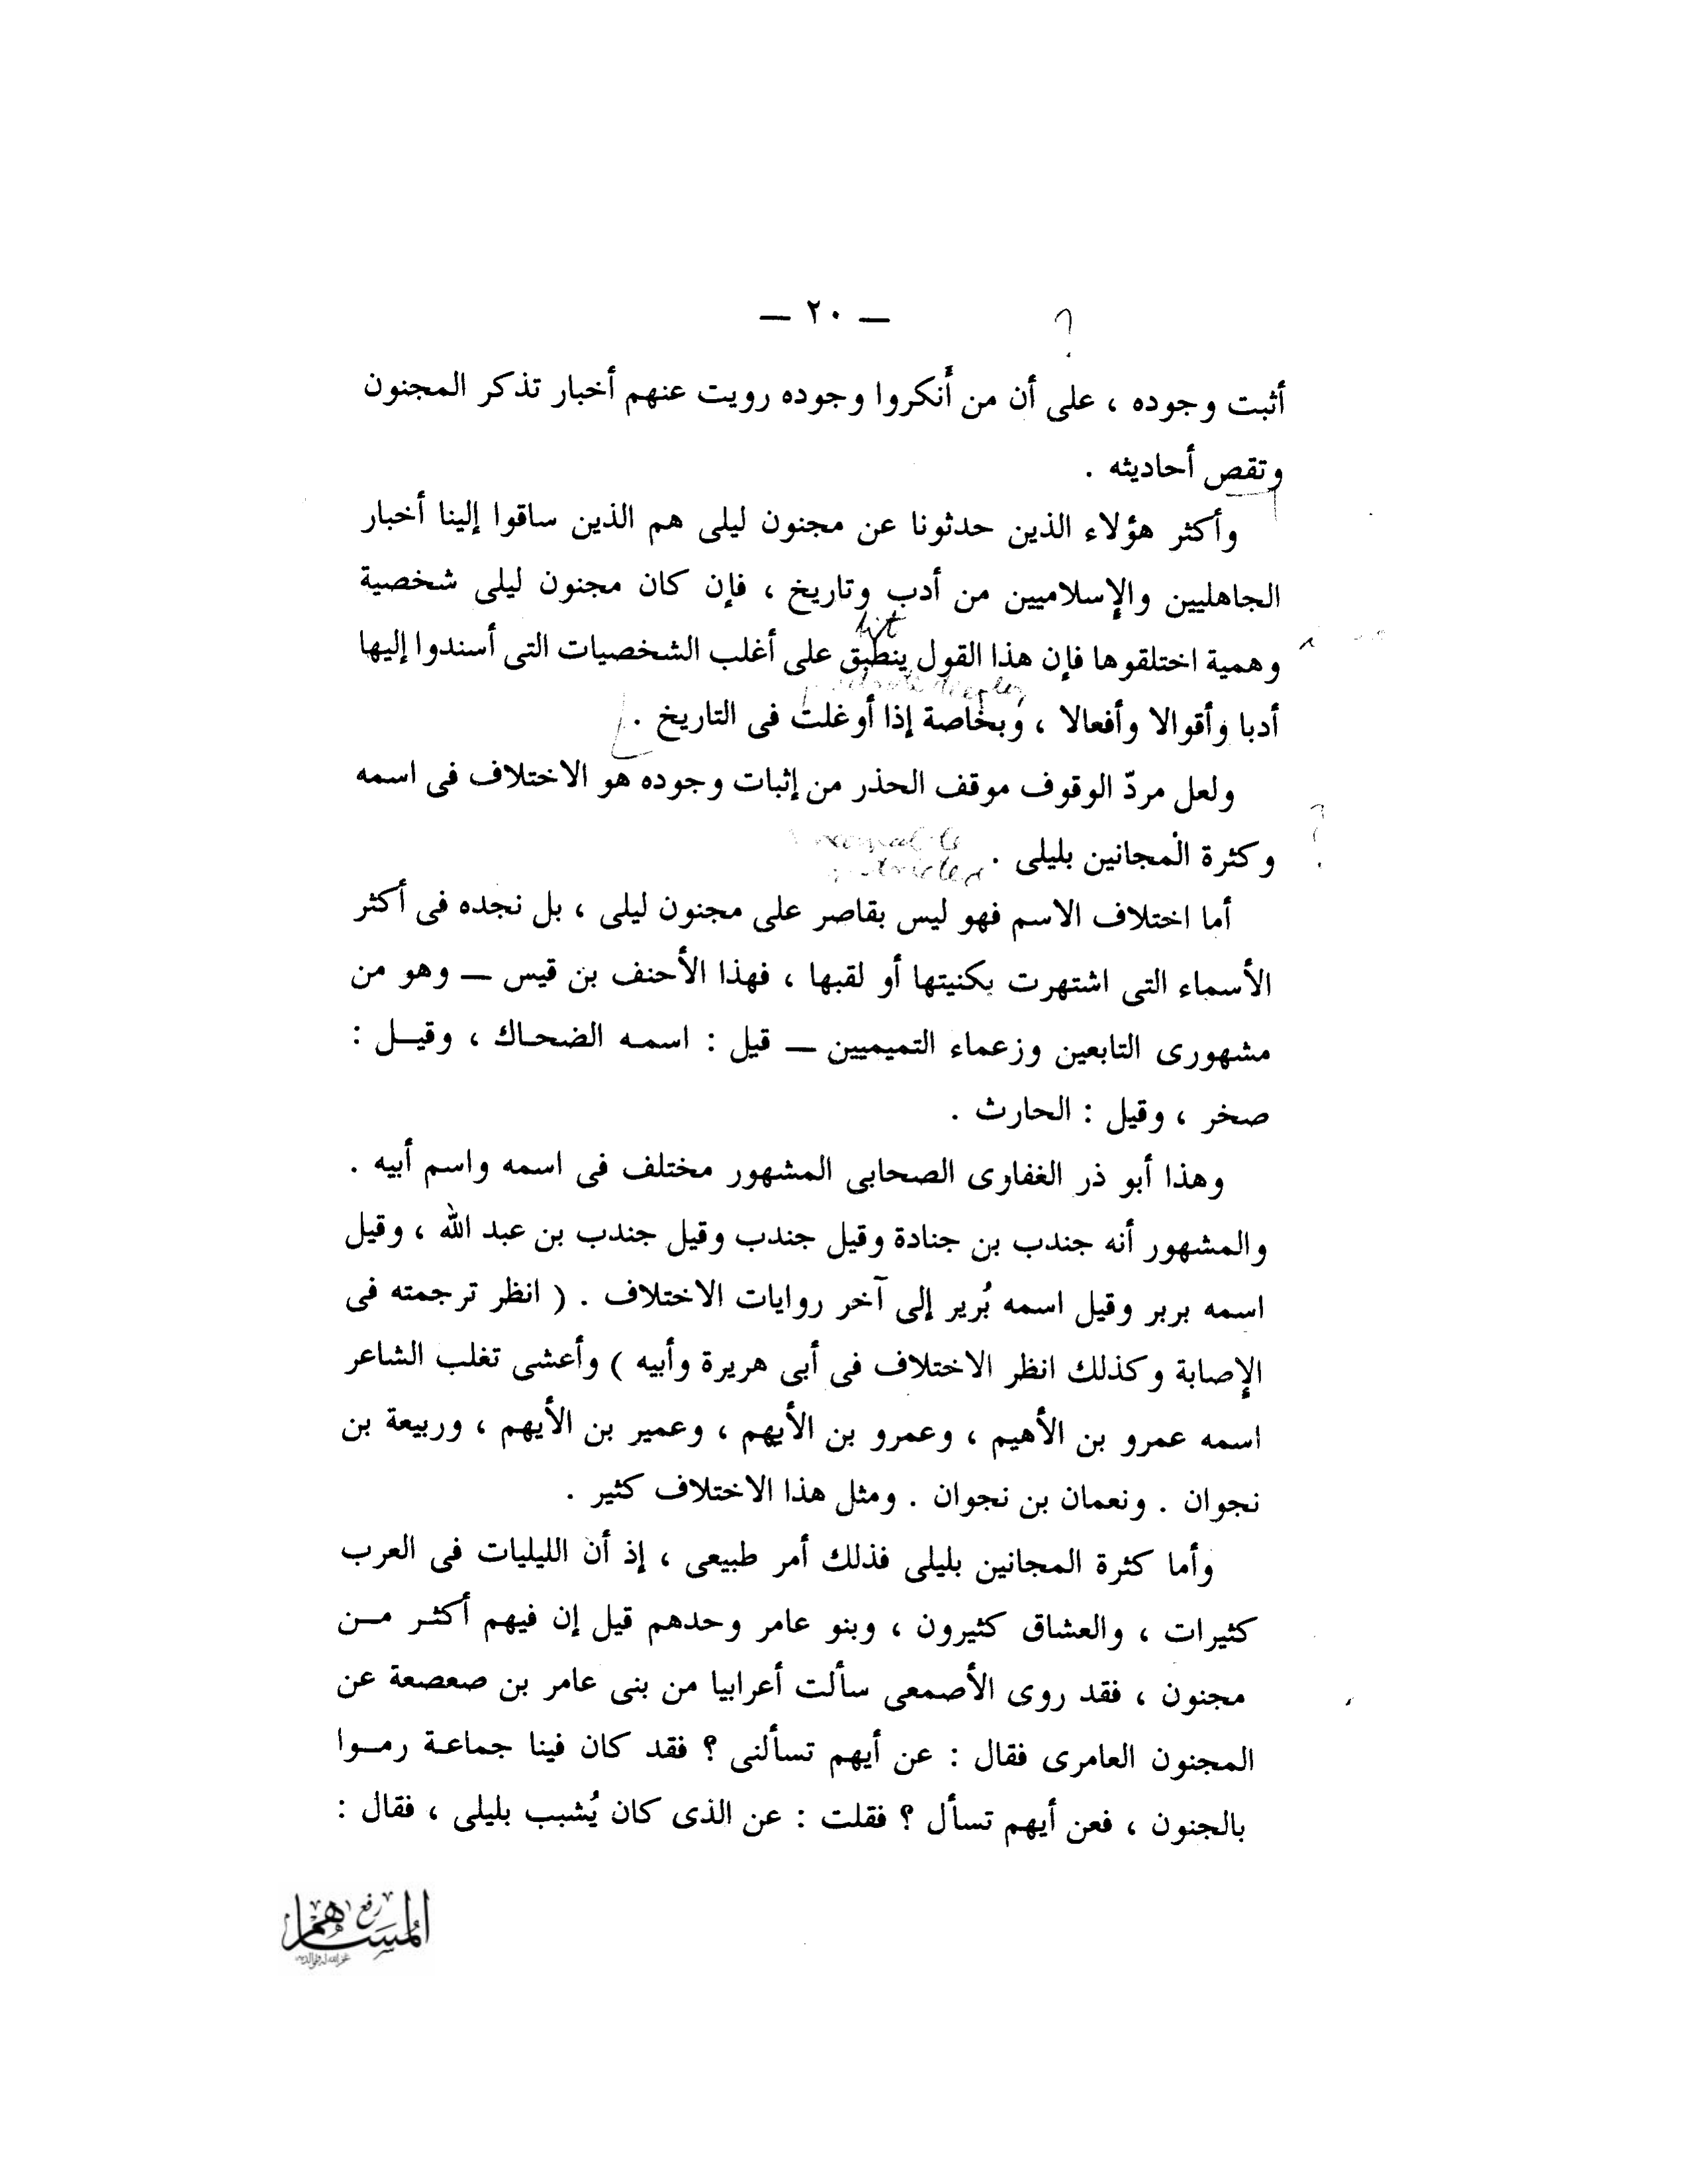 — ٢٠ —
?
أثبت وجوده ، على أن من أَنكروا وجوده رويت عنهم أخبار تذكر المجنون
وتقص أحاديثه .
وأكثر هؤلاء الذين حدثونا عن مجنون ليلى هم الذين ساقوا إلينا أخبار
الجاهليين والإسلاميين من أدب وتاريخ ، فإن كان مجنون ليلى شخصية
وهمية اختلقوها فإن هذا القول ينطبق على أغلب الشخصيات التى أسندوا إليها
أدبا وأقوالا وأفعالا ، وبخاصة إذا أوغلت فى التاريخ .
ولعل مردّ الوقوف موقف الحذر من إثبات وجوده هو الاختلاف فى اسمه
وكثرة المجانين بليلى .
أما اختلاف الاسم فهو ليس بقاصر على مجنون ليلى ، بل نجده فى أكثر
الأسماء التى اشتهرت بكنيتها أو لقبها ، فهذا الأحنف بن قيس — وهو من
مشهورى التابعين وزعماء التميميين — قيل : اسمه الضحاك ، وقيل :
صخر ، وقيل : الحارث .
وهذا أبو ذر الغفارى الصحابى المشهور مختلف فى اسمه واسم أبيه .
والمشهور أنه جندب بن جنادة وقيل جندب وقيل جندب بن عبد الله ، وقيل
اسمه بربر وقيل اسمه بُرير إلى آخر روايات الاختلاف . ( انظر ترجمته فى
الإصابة وكذلك انظر الاختلاف فى أبى هريرة وأبيه ) وأعشى تغلب الشاعر
اسمه عمرو بن الأهيم ، وعمرو بن الأيهم ، وعمير بن الأيهم ، وربيعة بن
نجوان . ونعمان بن نجوان . ومثل هذا الاختلاف كثير .
وأما كثرة المجانين بليلى فذلك أمر طبيعى ، إذ أن الليليات فى العرب
كثيرات ، والعشاق كثيرون ، وبنو عامر وحدهم قيل إن فيهم أكثر من
مجنون ، فقد روى الأصمعى سألت أعرابيا من بنى عامر بن صعصعة عن
المجنون العامرى فقال : عن أيهم تسألنى ؟ فقد كان فينا جماعة رموا
بالجنون ، فعن أيهم تسأل ؟ فقلت : عن الذى كان يُشبب بليلى ، فقال :
رفع
المساهم